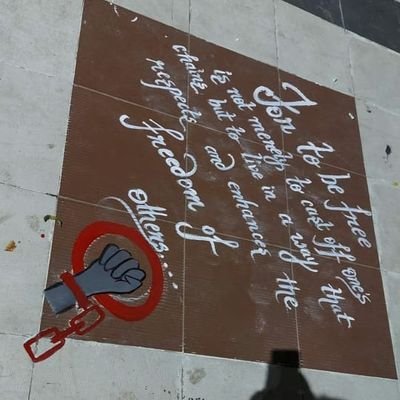 For to be free
is not merely to cast off one's
chains, but to live in a way that
respects and enhances the
freedom of
others....